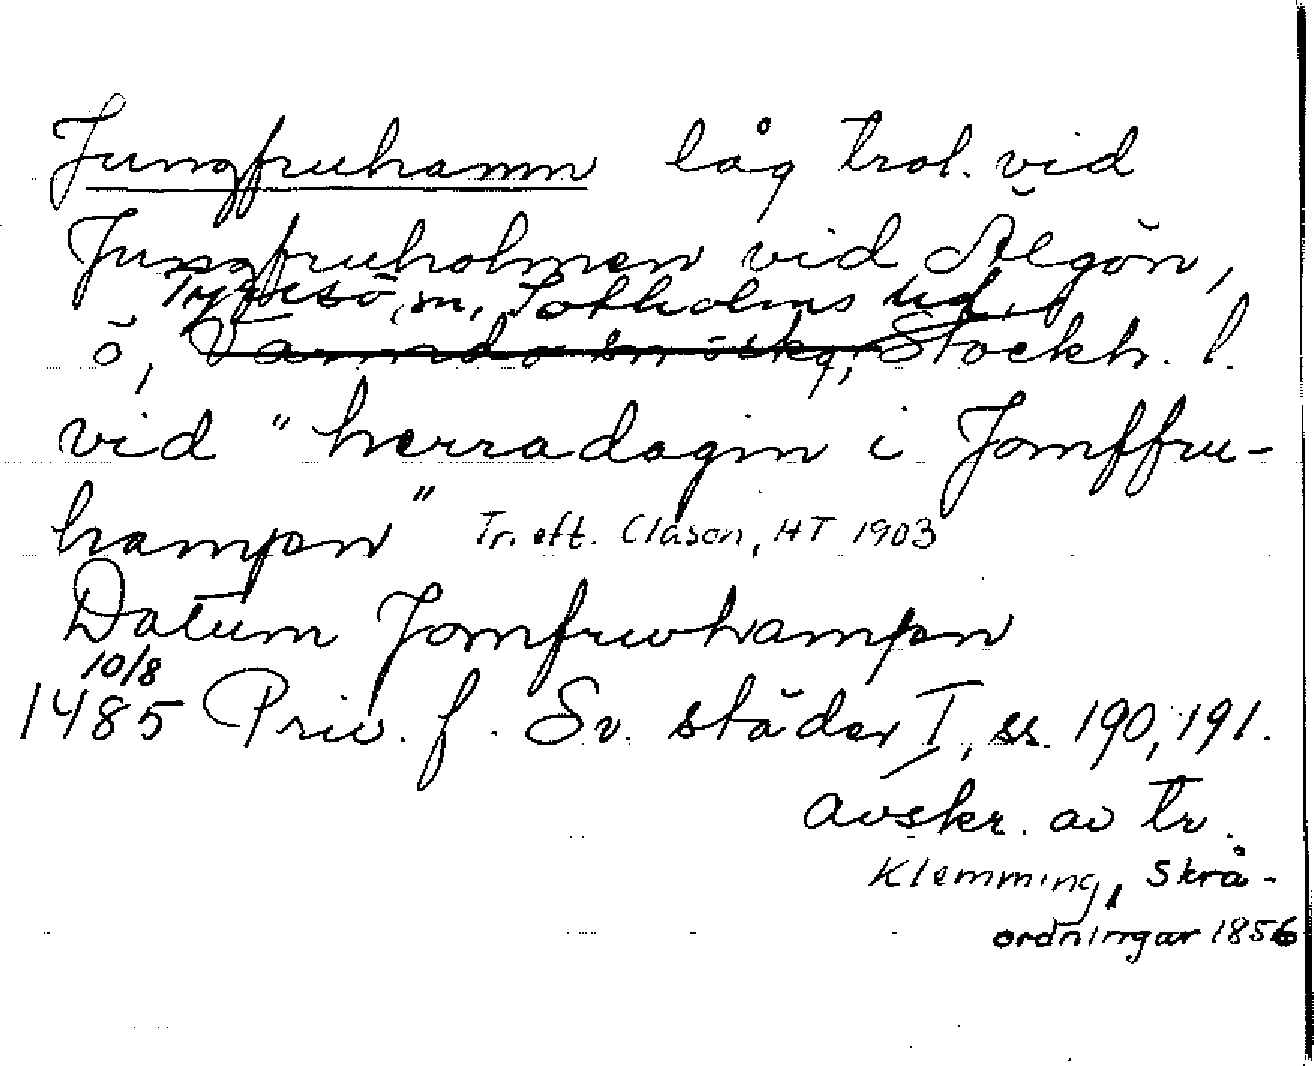 Jungfruhamn låg trol. vid
Jungfruholmen vid Älgön,
Tyresö sn, Sotholms hd,
ö, Värmdö skg, Stockh. l.
vid "herradagin i Jomffru-
hampn" Tr. eft. Clason, HT 1903
Datum Jomfruwhampn
10/8
1485 Priv. f. Sv. städer I, ss. 190, 191.
avskr. av tr.
Klemming, Skrå-
ordningar 1856